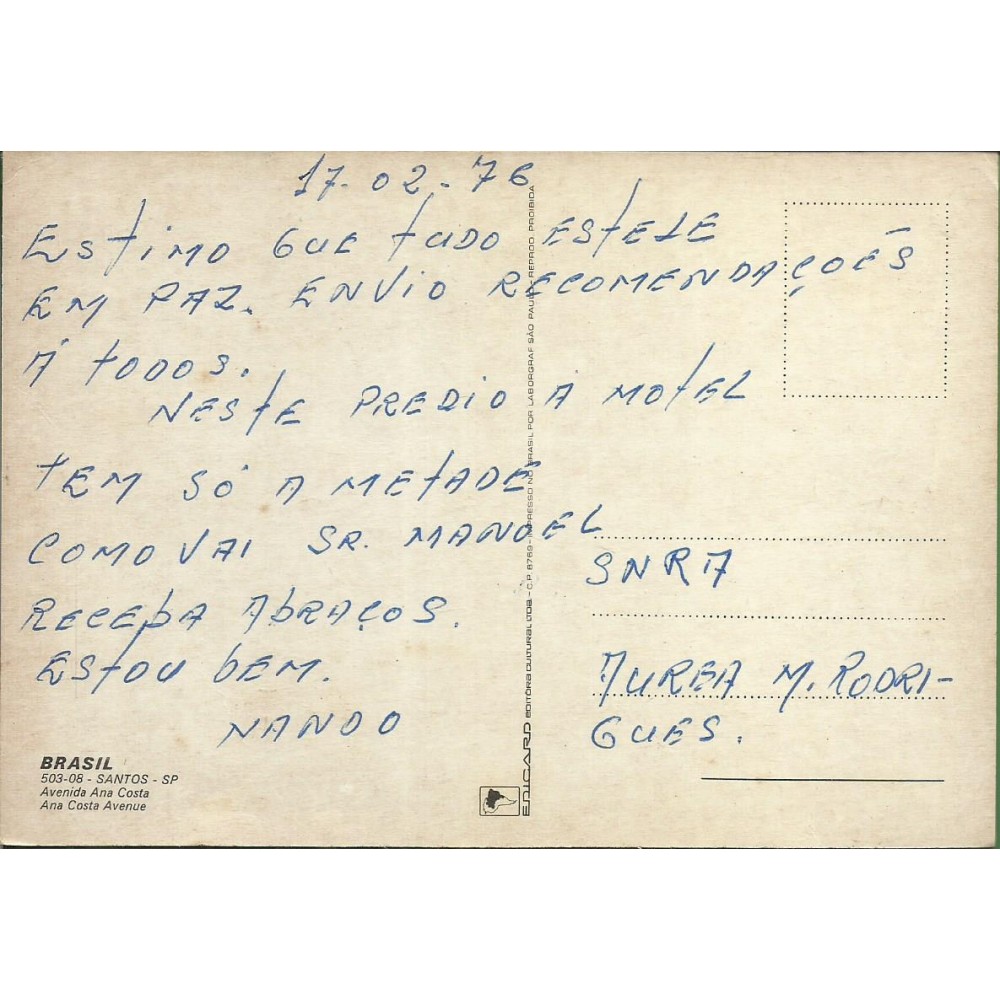 17-02-76
ESTIMO QUE TUDO ESTEJE
EM PAZ. ENVIO RECOMENDAÇOĒS
Á TODOS.
NESTE PREDIO A MOTEL
TEM SÓ A METADE
COMO VAI SR. MANOEL
RECEBA ABRAÇOS.
ESTOU BEM.
NANDO
BRASIL
503-08 - SANTOS - SP
Avenida Ana Costa
Ana Costa Avenue
EDICARD EDITÔRA CULTURAL LTDA - C.P. 8769 - IMPRESSO NO BRASIL POR LABORGRAF SÃO PAULO - REPROD. PROIBIDA
SNRA
AUREA M. RODRI-
GUES.